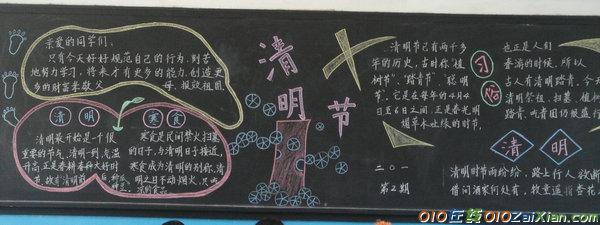 亲爱的同学们,
只有今天好好规范自己的行为,刻苦
地努力学习,将来才有更多的能力,创造更
多的财富来孝父母、报效祖国。
清明
清明最开始是一个很
重要的节气,清明一到,气温
升高,正是春耕春种的大好时
节,故有"清明前后,种瓜
种豆"
寒食
寒食是民间禁火扫墓
的日子,与清明日子接近,
寒食成为清明的别称,清
明之日不动烟火,只吃
凉的食品。
清明节
二〇一
第2期
清明节已有两千多
年的历史,古时你"植
树节"、"踏青节""聪明
节"。它是在每年的4月4
日至6日之间,正是春光明
媚草木吐绿的时节,
习俗
也正是人们
春游的时候,所以
古人有清明踏青,今天
清明祭祖、扫墓、植树
踏青
清明
清明时节雨纷纷,路上行人欲断
借问酒家何处有,牧童遥指杏花
010在线 010ZaiXian.com